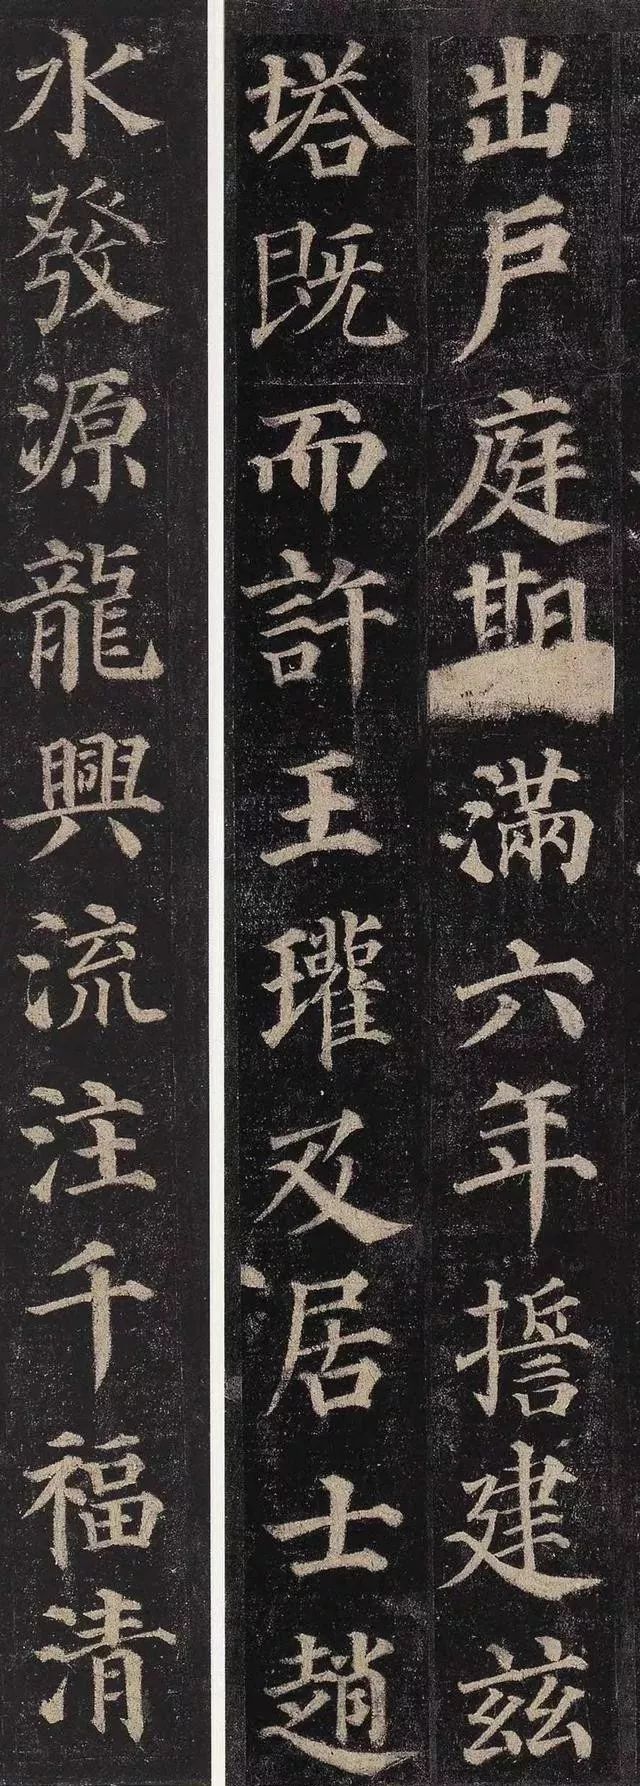 出戶庭期滿六年誓建茲
塔既而許王瓘及居士趙
水發源龍興流注千福清